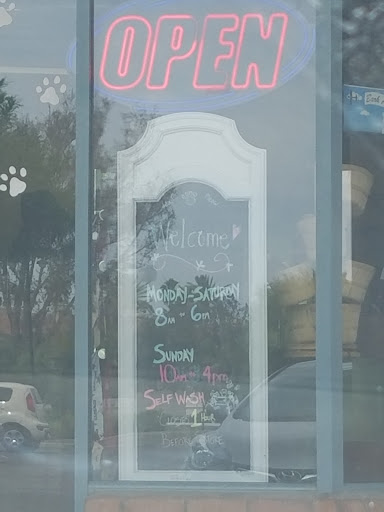 OPEN
Welcome
MONDAY-SATURDAY
8AM - 6PM
SUNDAY
10AM - 4PM
SELF WASH
CLOSES 1 HOUR
BEFORE CLOSE